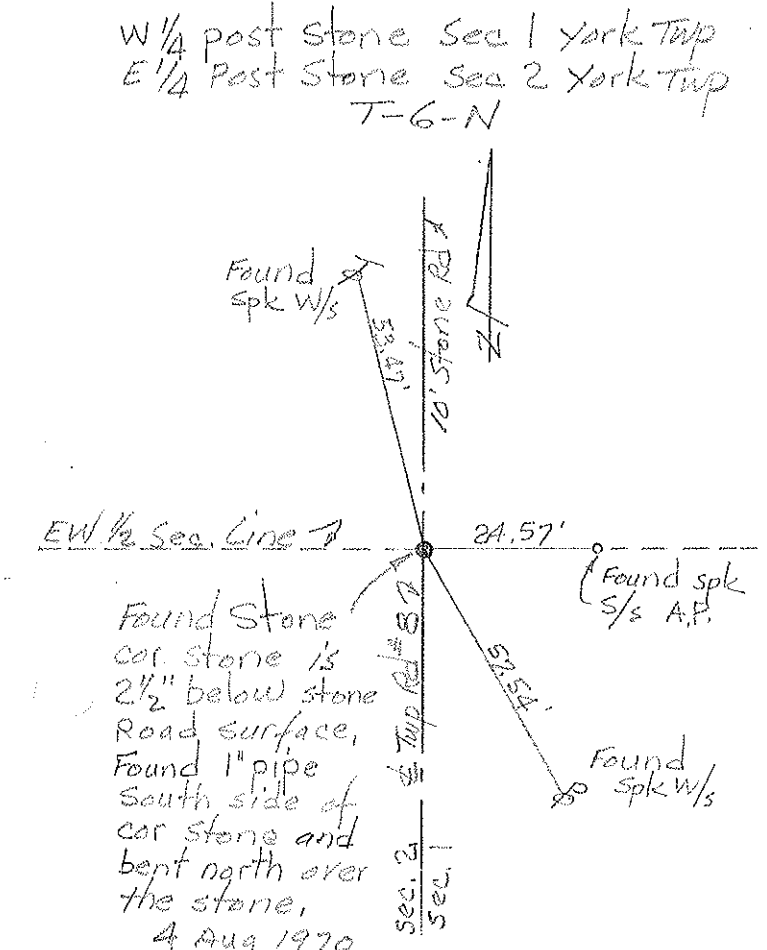 W 1/4 post Stone Sec 1 York Twp
E 1/4 Post Stone Sec 2 York Twp
T-6-N
Found
Spk W/s
53.47'
10' Stone Rd
N
EW 1/2 Sec. Line
24.57'
Found spk
S/s A.P.
Found Stone
cor. stone is
2 1/2" below stone
Road surface,
Found 1" pipe
South side of
cor stone and
bent north over
the stone,
4 Aug 1970
℄ Twp Rd # 87
57.54'
Found
Spk W/s
Sec. 2
Sec. 1